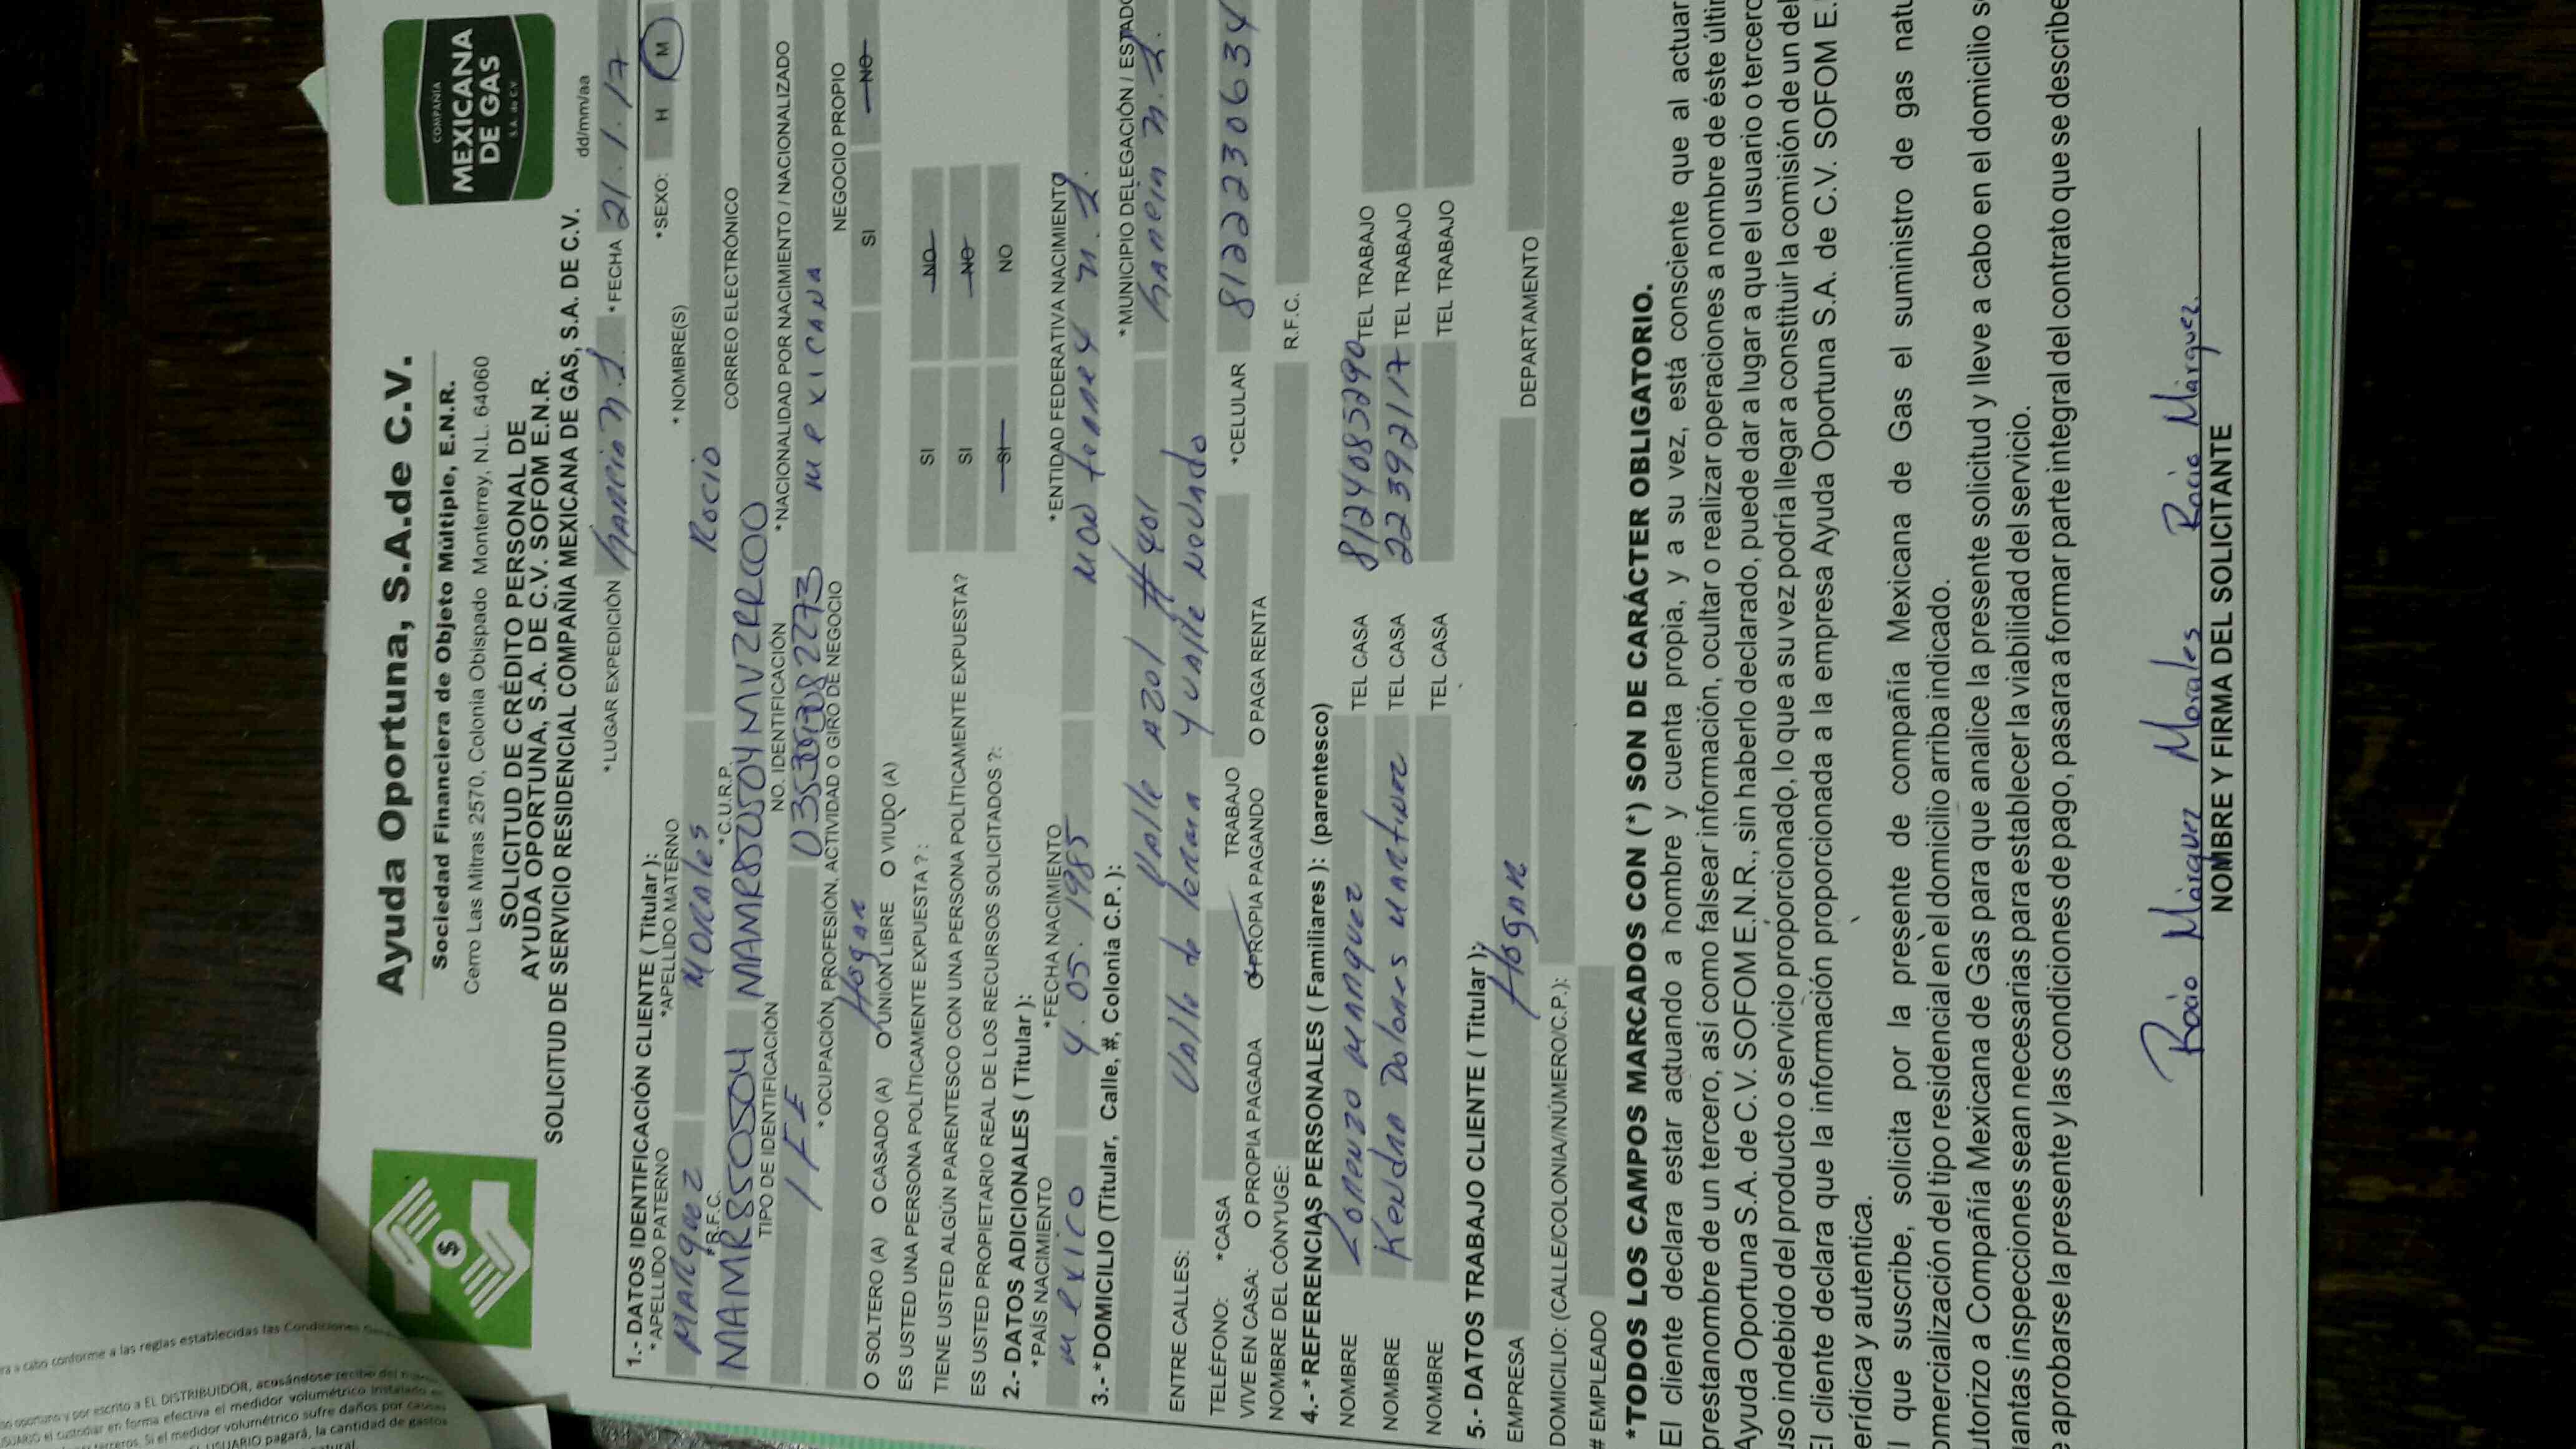 Ayuda Oportuna, S.A.de C.V.
Sociedad Financiera de Objeto Múltiple, E.N.R.
Cerro Las Mitras 2570, Colonia Obispado Monterrey, N.L. 64060
COMPAÑIA
MEXICANA
DE GAS
S.A. de C.V.
$
SOLICITUD DE CRÉDITO PERSONAL DE
AYUDA OPORTUNA, S.A. DE C.V. SOFOM E.N.R.
SOLICITUD DE SERVICIO RESIDENCIAL COMPAÑIA MEXICANA DE GAS, S.A. DE C.V.
dd/mm/aa
*LUGAR EXPEDICIÓN García N.L. *FECHA 21.1.17
1.- DATOS IDENTIFICACIÓN CLIENTE ( Titular ):
*APELLIDO PATERNO *APELLIDO MATERNO *NOMBRE(S) *SEXO: H M
Marquez Morales Rocio
*R.F.C. *C.U.R.P. CORREO ELECTRÓNICO
MAMR850504
TIPO DE IDENTIFICACIÓN NO. IDENTIFICACIÓN *NACIONALIDAD POR NACIMIENTO / NACIONALIZADO
IFE mexicana
*OCUPACIÓN, PROFESIÓN, ACTIVIDAD O GIRO DE NEGOCIO NEGOCIO PROPIO
Hogar SI NO
O SOLTERO (A) O CASADO (A) O UNIÓN LIBRE O VIUDO (A)
ES USTED UNA PERSONA POLÍTICAMENTE EXPUESTA ? : SI NO
TIENE USTED ALGÚN PARENTESCO CON UNA PERSONA POLÍTICAMENTE EXPUESTA? SI NO
ES USTED PROPIETARIO REAL DE LOS RECURSOS SOLICITADOS ?: SI NO
2.- DATOS ADICIONALES ( Titular ):
*PAÍS NACIMIENTO *FECHA NACIMIENTO *ENTIDAD FEDERATIVA NACIMIENTO
mexico 4.05.1985 Monterrey N.L.
3.- *DOMICILIO (Titular, Calle, #, Colonia C.P. ): *MUNICIPIO DELEGACIÓN / ESTADO
Valle Azul #401 García N.L.
ENTRE CALLES: Valle de Lerma y Valle
TELÉFONO: *CASA TRABAJO *CELULAR 8122230634
VIVE EN CASA: O PROPIA PAGADA O PROPIA PAGANDO O PAGA RENTA
NOMBRE DEL CÓNYUGE: R.F.C.
4.- *REFERENCIAS PERSONALES ( Familiares ): (parentesco)
NOMBRE Lorenzo Marquez TEL CASA 8124085290 TEL TRABAJO
NOMBRE Kendra Dolores Martinez TEL CASA 22392117 TEL TRABAJO
NOMBRE TEL CASA TEL TRABAJO
5.- DATOS TRABAJO CLIENTE ( Titular ):
EMPRESA Hogar DEPARTAMENTO
DOMICILIO: (CALLE/COLONIA/NÚMERO/C.P.):
# EMPLEADO
*TODOS LOS CAMPOS MARCADOS CON (*) SON DE CARÁCTER OBLIGATORIO.
El cliente declara estar actuando a nombre y cuenta propia, y a su vez, está consciente que al actuar
prestanombre de un tercero, así como falsear información, ocultar o realizar operaciones a nombre de éste últi
Ayuda Oportuna S.A. de C.V. SOFOM E.N.R., sin haberlo declarado, puede dar a lugar a que el usuario o tercero
uso indebido del producto o servicio proporcionado, lo que a su vez podría llegar a constituir la comisión de un del
El cliente declara que la información proporcionada a la empresa Ayuda Oportuna S.A. de C.V. SOFOM E.
erídica y autentica.
l que suscribe, solicita por la presente de compañía Mexicana de Gas el suministro de gas natu
omercialización del tipo residencial en el domicilio arriba indicado.
utorizo a Compañía Mexicana de Gas para que analice la presente solicitud y lleve a cabo en el domicilio s
uantas inspecciones sean necesarias para establecer la viabilidad del servicio.
e aprobarse la presente y las condiciones de pago, pasara a formar parte integral del contrato que se describe
Rocio Márquez Morales Rocio Márquez.
NOMBRE Y FIRMA DEL SOLICITANTE
a cabo conforme a las reglas establecidas las Condiciones
oportuno y por escrito a EL DISTRIBUIDOR, acusándose recibo del
el custodiar en forma efectiva el medidor volumétrico instalado
terceros. Si el medidor volumétrico sufre daños por causas
USUARIO pagará, la cantidad de gastos